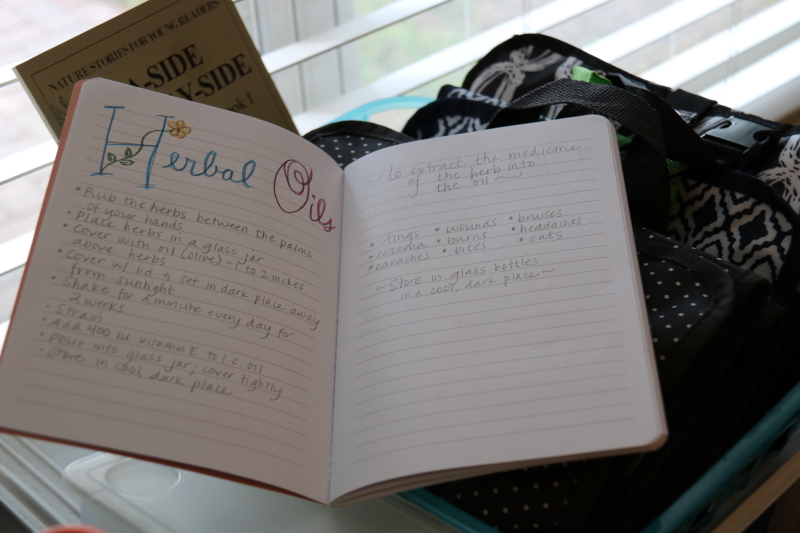 NATURE STORIES FOR YOUNG READERS
A-SIDE
Y-SIDE
k 1
Herbal Oils
• Rub the herbs between the palms
of your hands
• place herbs in a glass jar
• cover with oil (olive) - 1 to 2 inches
above herbs
• Cover w/ lid & set in dark place away
from sunlight
• Shake for a minute every day for
2 weeks
• Strain
• Add 400 IU vitamin E to 1 c. oil
• pour into glass jar, cover tightly
• Store in cool dark place
~ to extract the medicine
of the herb into
the oil ~
• stings • wounds • bruises
• eczema • burns • headaches
• earaches • bites • cuts
~ Store in glass bottles
in a cool, dark place ~